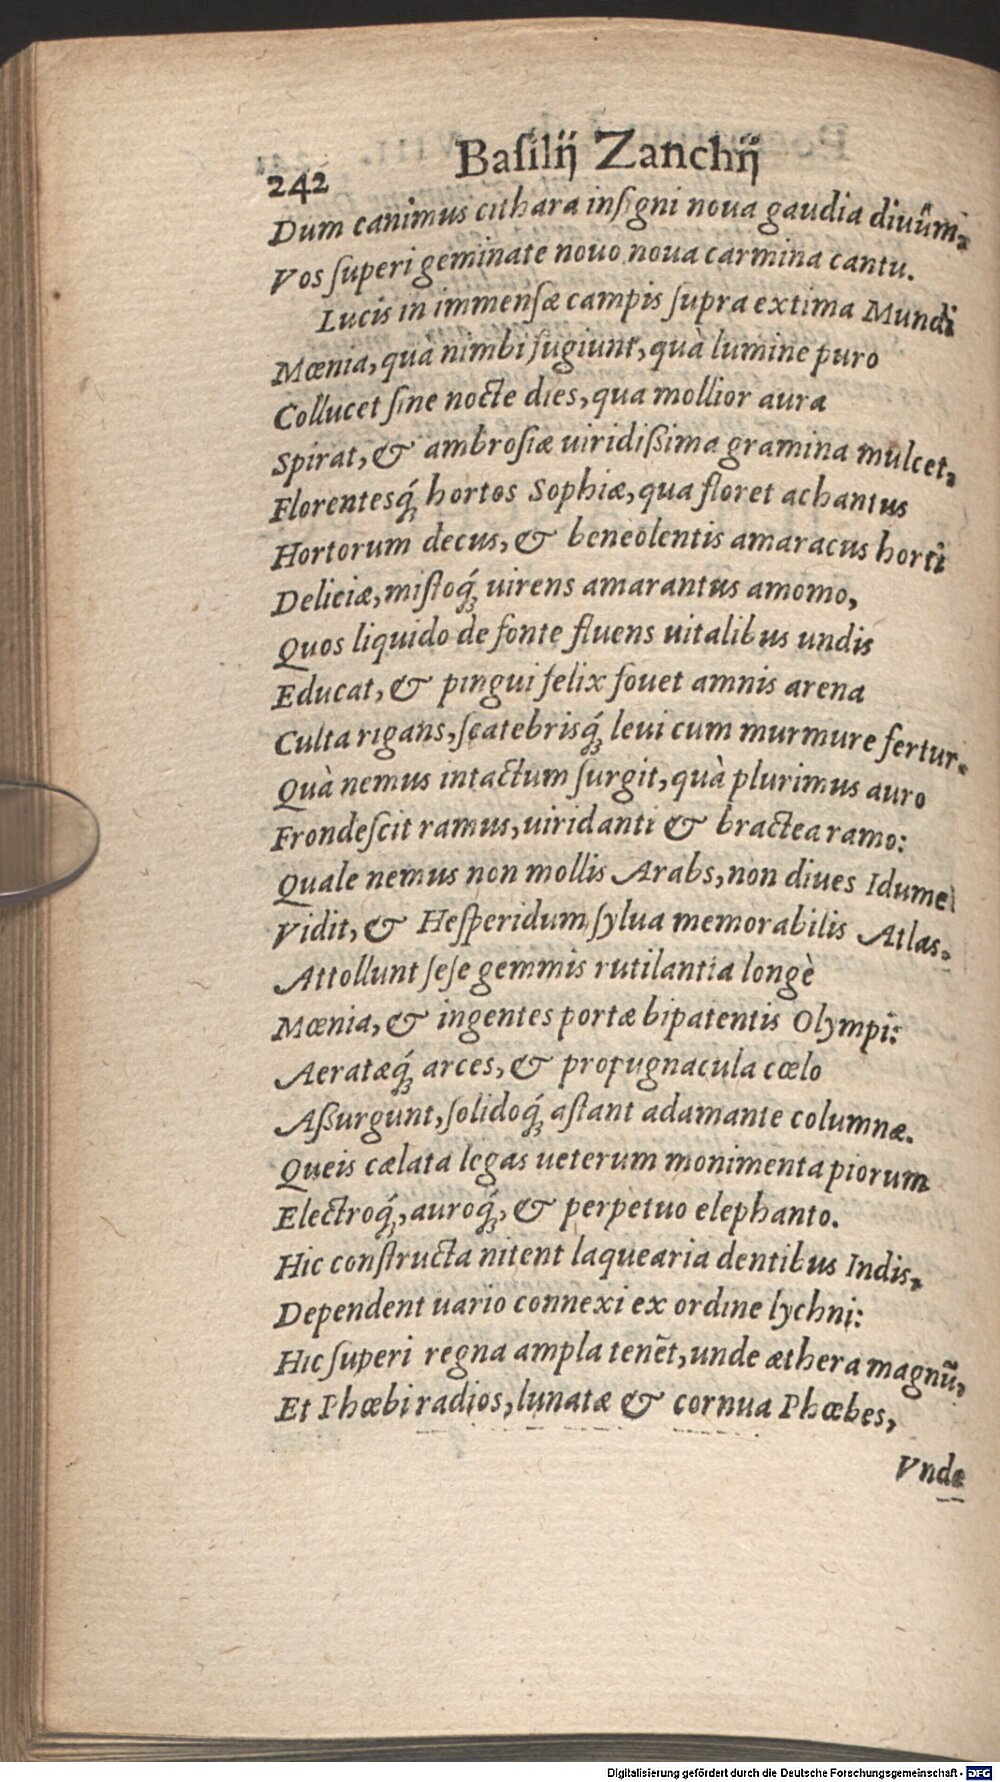 Baſilĳ Zanchĳ
242
Dum canimus cithara inſigni noua gaudia diuûm,
Vos ſuperi geminate nouo noua carmina cantu.
Lucis in immenſæ campis ſupra extima Mundi
Mœnia, quà nimbi fugiunt, quà lumine puro
Collucet ſine nocte dies, qua mollior aura
Spirat, & ambroſiæ uiridiſsima gramina mulcet,
Florentesq́; hortos Sophiæ, qua floret achantus
Hortorum decus, & beneolentis amaracus horti
Deliciæ, miſtoq́; uirens amarantus amomo,
Quos liquido de fonte fluens uitalibus undis
Educat, & pingui felix fouet amnis arena
Culta rigans, ſcatebrisq́; leui cum murmure fertur.
Quà nemus intactum ſurgit, quà plurimus auro
Frondeſcit ramus, uiridanti & bractea ramo:
Quale nemus non mollis Arabs, non diues Idume
Vidit, & Heſperidum ſylua memorabilis Atlas.
Attollunt ſeſe gemmis rutilantia longè
Mœnia, & ingentes portæ bipatentis Olympi:
Aeratæq́; arces, & propugnacula cœlo
Aſsurgunt, ſolidoq́; aſtant adamante columnæ.
Queis cælata legas ueterum monimenta piorum
Electroq́;, auroq́;, & perpetuo elephanto.
Hic conſtructa nitent laquearia dentibus Indis,
Dependent uario connexi ex ordine lychni:
Hic ſuperi regna ampla tenẽt, unde æthera magnũ,
Et Phœbi radios, lunatæ & cornua Phœbes,
Vnde
Digitalisierung gefördert durch die Deutsche Forschungsgemeinschaft - DFG